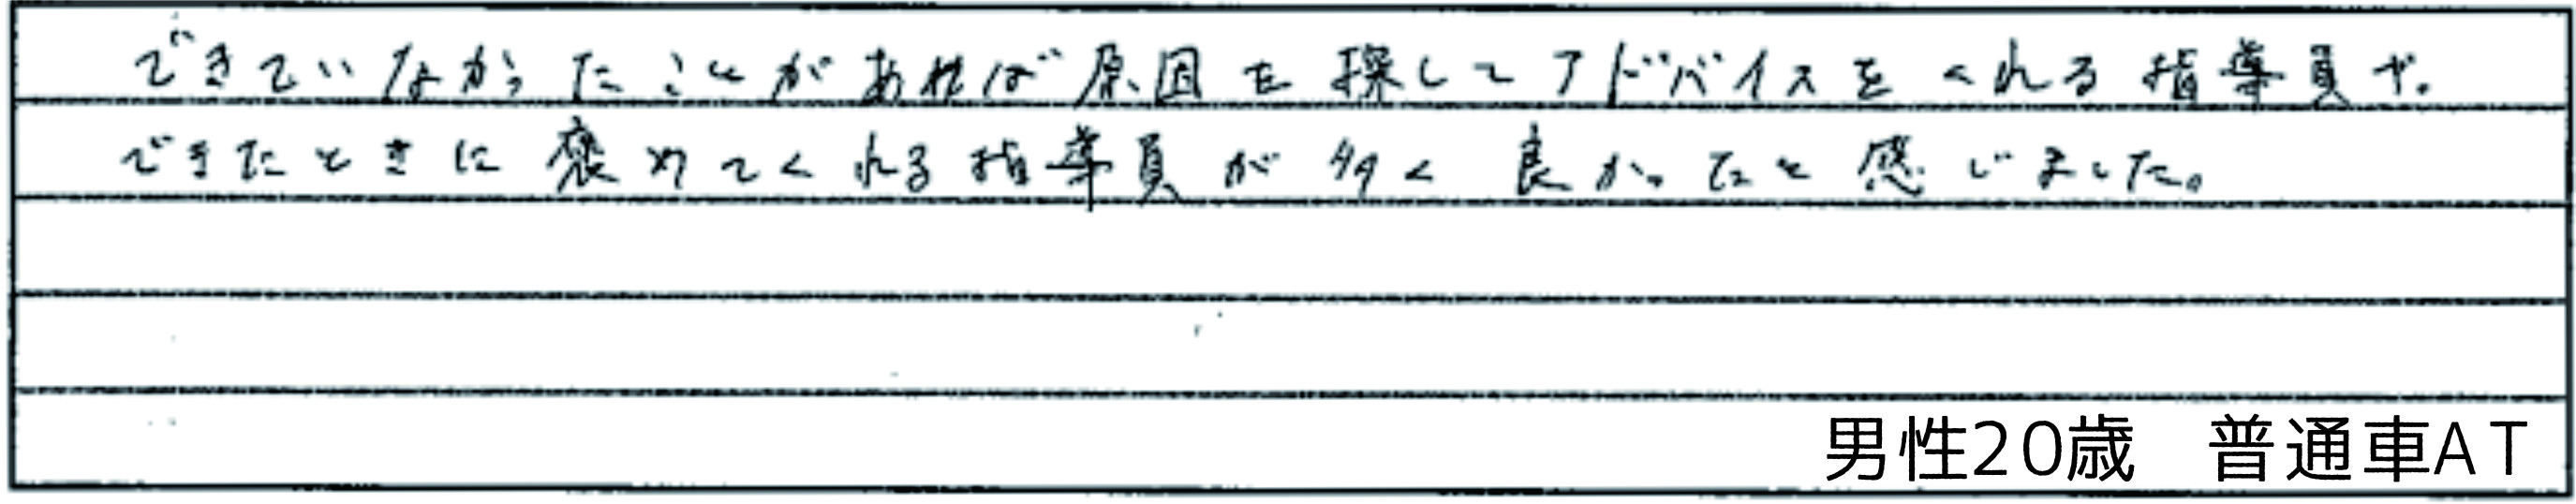 できていなかったことがあれば原因を探してアドバイスをくれる指導員や、
できたときに褒めてくれる指導員が多く良かったと感じました。
男性20歳　普通車AT